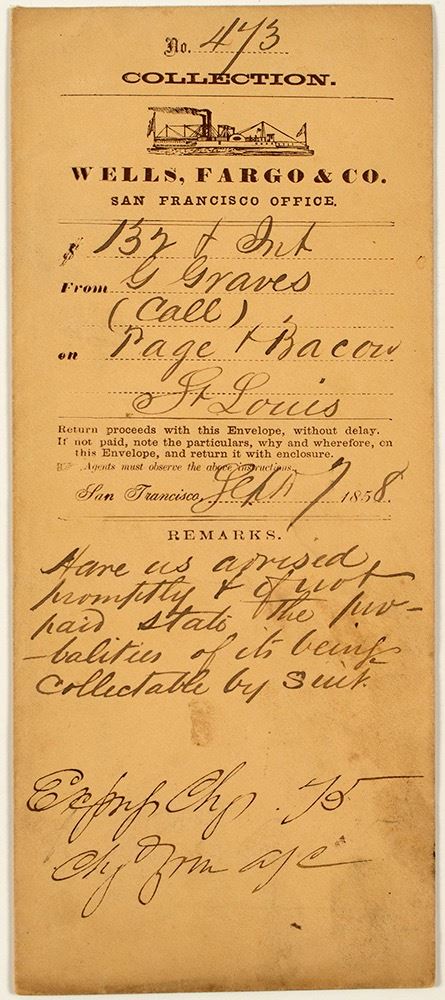 No. 473
COLLECTION.
WELLS, FARGO & CO.
SAN FRANCISCO OFFICE.
$ 132 & Int
From G Graves
(Call)
on Page & Bacon
St Louis
Return proceeds with this Envelope, without delay.
If not paid, note the particulars, why and wherefore, on
this Envelope, and return it with enclosure.
Agents must observe the above instructions.
San Francisco, Sept 7 1858.
REMARKS.
Have us advised
promptly & if not
paid state the pro-
-balities of its being
Collectable by Suit.
Chg. 75
Chg a/c